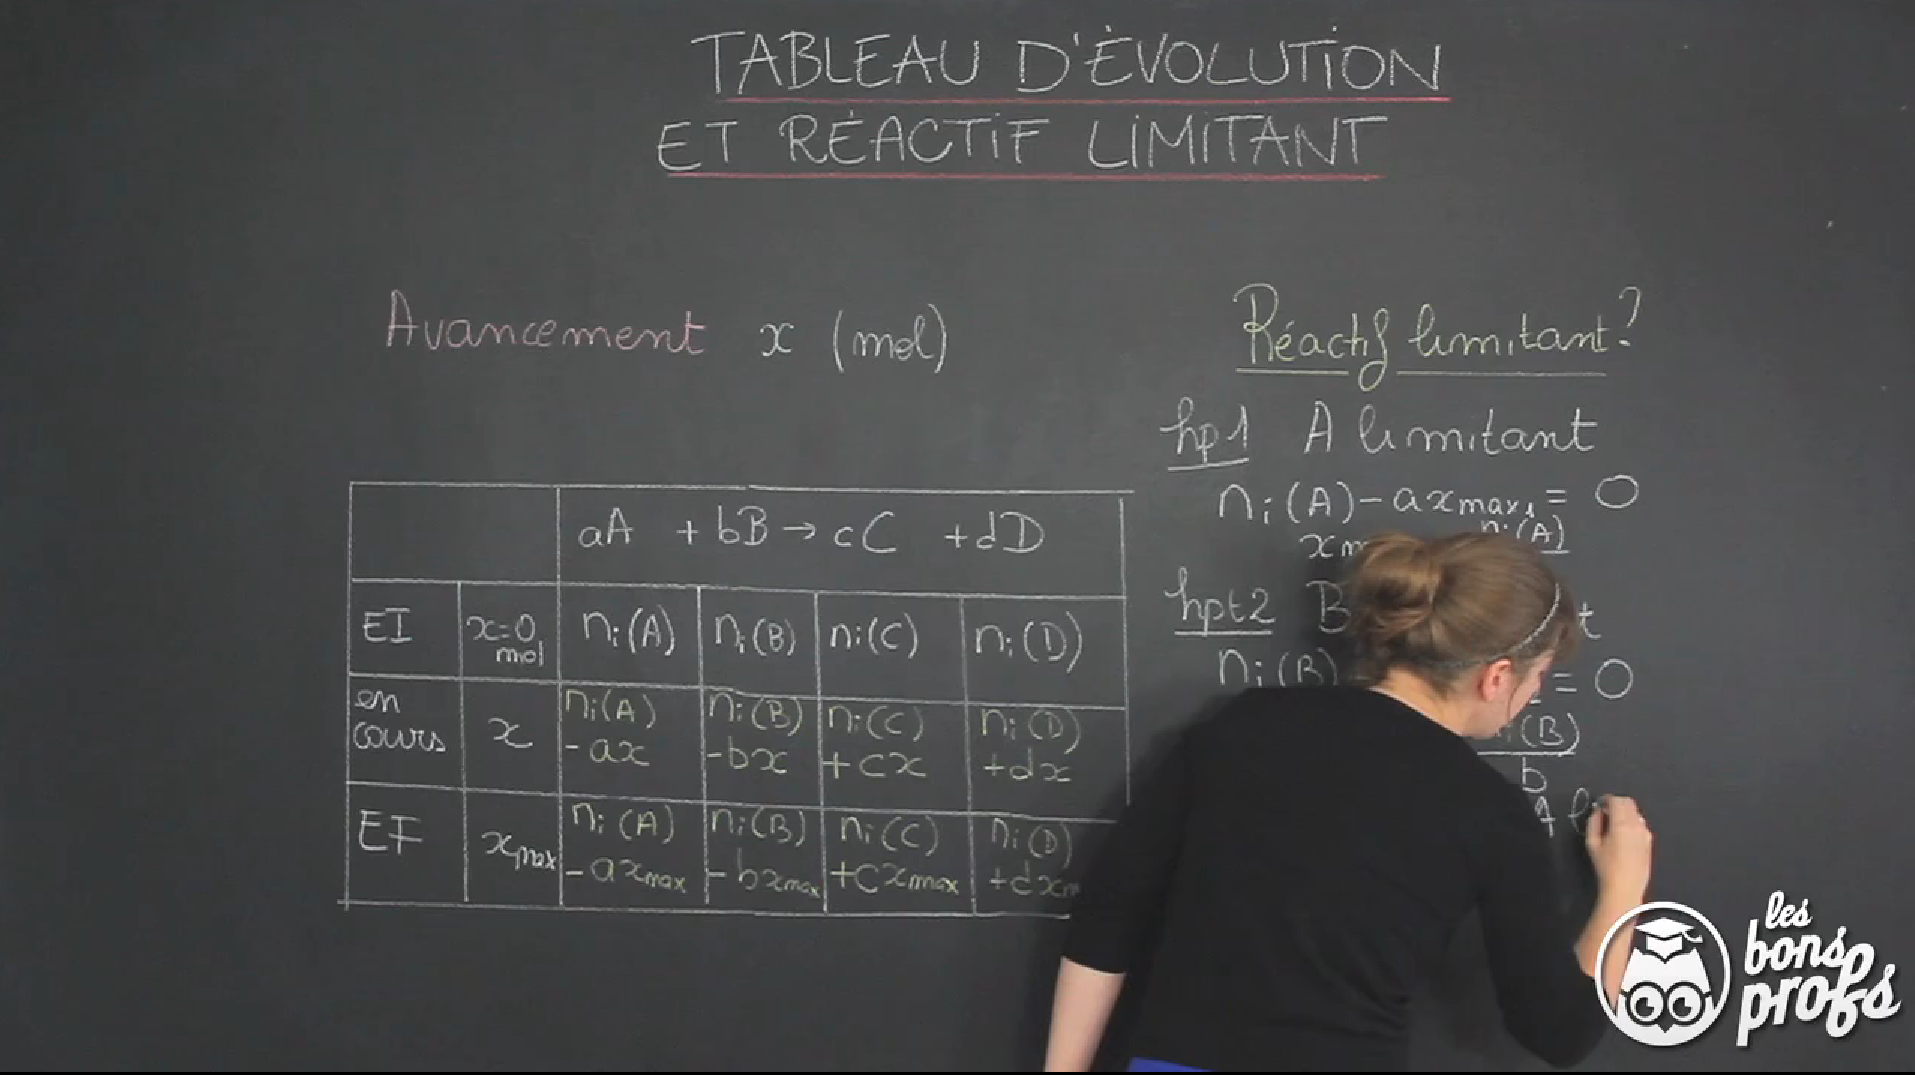 TABLEAU D'ÉVOLUTION
ET RÉACTIF LIMITANT
Avancement x (mol)
aA + bB → cC + dD
EI x=0 mol ni(A) ni(B) ni(C) ni(D)
en cours x ni(A) -ax ni(B) -bx ni(C) +cx ni(D) +dx
EF xmax ni(A) -axmax ni(B) -bxmax ni(C) +cxmax ni(D)
Réactif limitant?
hp1 A limitant
ni(A)-axmax1 = 0
ni(A)
hpt2 B
ni(B) = 0
(B)
b
A
les bons profs